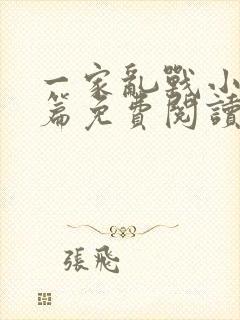 一家亂戰小
篇免費閱讀
張飛